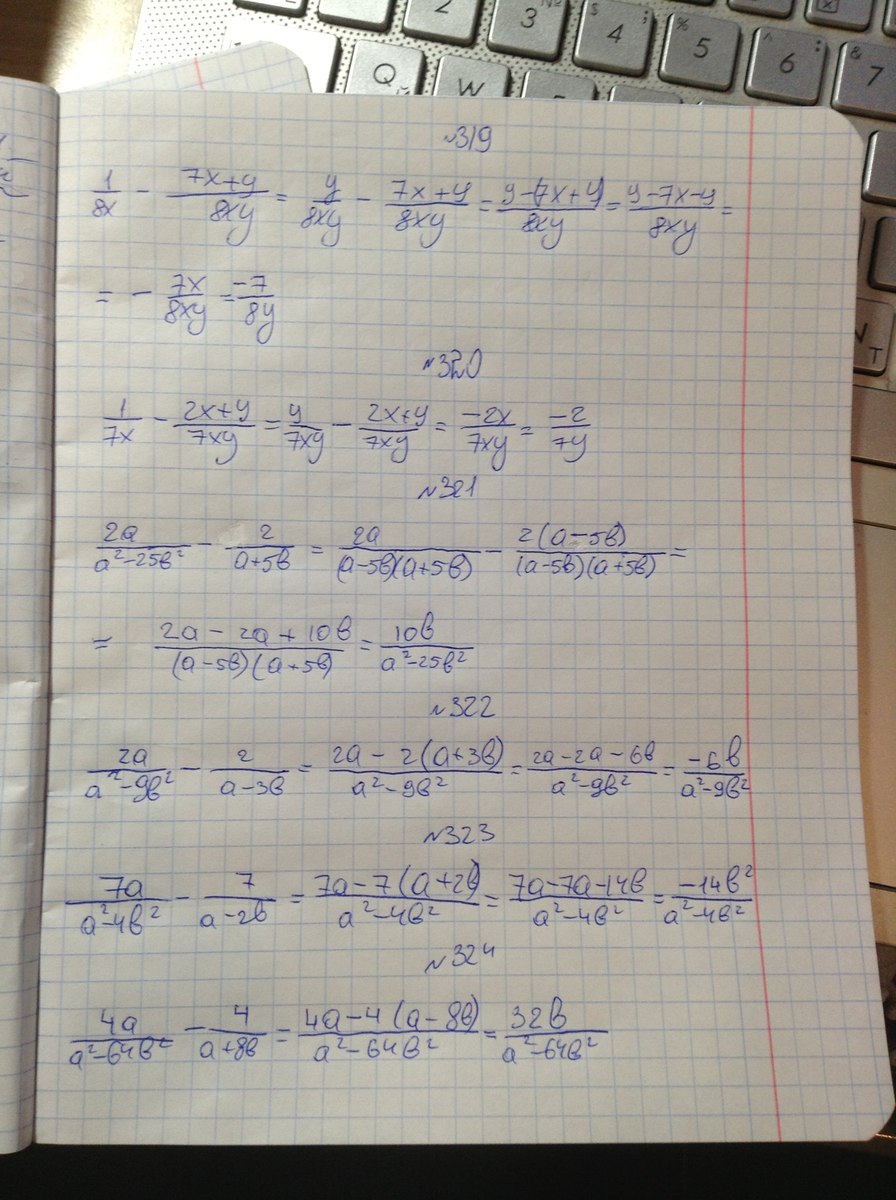 №319
1/8x - 7x+y/8xy = y/8xy - 7x+y/8xy = y-(7x+y)/8xy = y-7x-y/8xy =
= - 7x/8xy = -7/8y
№320
1/7x - 2x+y/7xy = y/7xy - 2x+y/7xy = -2x/7xy = -2/7y
№321
2a/a²-25b² - 2/a+5b = 2a/(a-5b)(a+5b) - 2(a-5b)/(a-5b)(a+5b) =
= 2a-2a+10b/(a-5b)(a+5b) = 10b/a²-25b²
№322
2a/a²-9b² - 2/a-3b = 2a-2(a+3b)/a²-9b² = 2a-2a-6b/a²-9b² = -6b/a²-9b²
№323
7a/a²-4b² - 7/a-2b = 7a-7(a+2b)/a²-4b² = 7a-7a-14b/a²-4b² = -14b²/a²-4b²
№324
4a/a²-64b² - 4/a+8b = 4a-4(a-8b)/a²-64b² = 32b/a²-64b²
2
3 №
$ 4 ;
% 5
^ 6 :
& 7
Q Й
W
N T